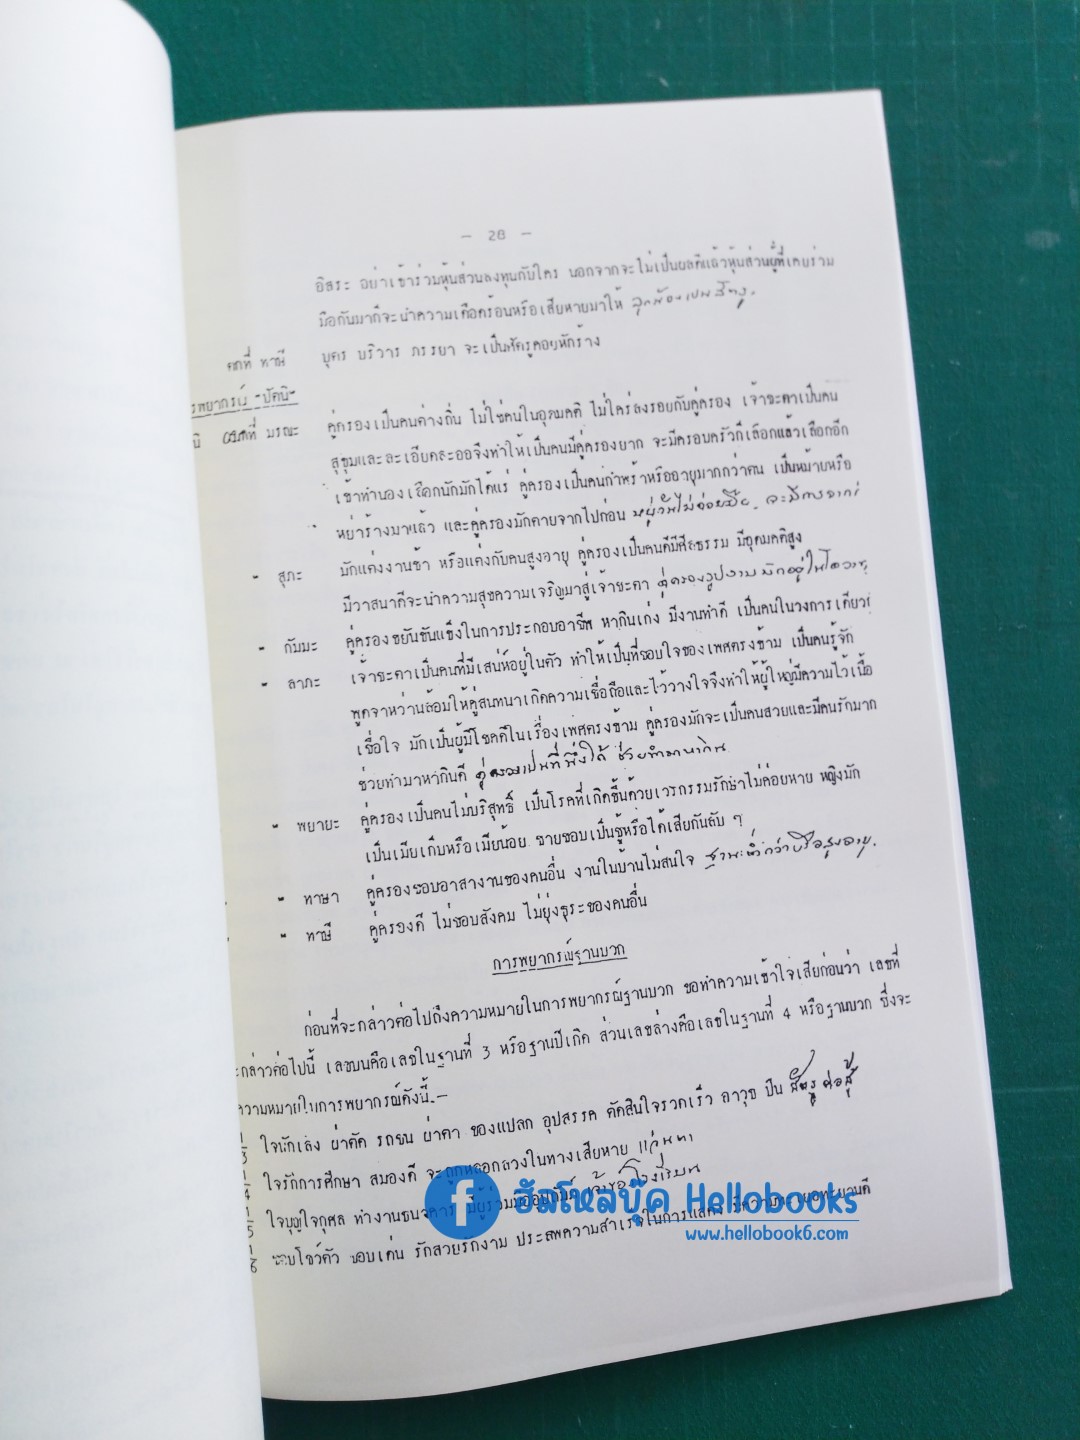 — 28 —
อิสระ อย่าเข้าร่วมหุ้นส่วนลงทุนกับใคร นอกจากจะไม่เป็นผลดีแล้วหุ้นส่วนผู้ที่เคยร่วม
มือกันมาก็จะนำความเดือดร้อนหรือเสียหายมาให้
ตกที่ ทาษี บุตร บริวาร ภรรยา จะเป็นศัตรูคอยหักร้าง
รพยากรณ์ -ปัตนิ-
นิ ตกที่ มรณะ คู่ครองเป็นคนต่างถิ่น ไม่ใช่คนในอุดมคติ ไม่ใคร่ลงรอยกับคู่ครอง เจ้าชะตาเป็นคน
สุขุมและละเอียดละออจึงทำให้เป็นคนมีคู่ครองยาก จะมีครอบครัวก็เลือกแล้วเลือกอีก
เข้าทำนองเลือกนักมักได้แร่ คู่ครองเป็นคนกำพร้าหรืออายุมากกว่าตน เป็นหม้ายหรือ
หย่าร้างมาแล้ว และคู่ครองมักตายจากไปก่อน
- สุภะ มักแต่งงานช้า หรือแต่งกับคนสูงอายุ คู่ครองเป็นคนดีมีศีลธรรม มีอุดมคติสูง
มีวาสนาดีจะนำความสุขความเจริญมาสู่เจ้าชะตา
- กัมมะ คู่ครองขยันขันแข็งในการประกอบอาชีพ หากินเก่ง มีงานทำดี เป็นคนในวงการเดียว
- ลาภะ เจ้าชะตาเป็นคนที่มีเสน่ห์อยู่ในตัว ทำให้เป็นที่ชอบใจของเพศตรงข้าม เป็นคนรู้จัก
พูดจาหว่านล้อมให้คู่สนทนาเกิดความเชื่อถือและไว้วางใจจึงทำให้ผู้ใหญ่มีความไว้เนื้อ
เชื่อใจ มักเป็นผู้มีโชคดีในเรื่องเพศตรงข้าม คู่ครองมักจะเป็นคนสวยและมีคนรักมาก
ช่วยทำมาหากินดี คู่ครองเป็นที่พึ่งได้ ช่วยทำมาหากิน
- พยายะ คู่ครองเป็นคนไม่บริสุทธิ์ เป็นโรคที่เกิดขึ้นด้วยเวรกรรมรักษาไม่ค่อยหาย หญิงมัก
เป็นเมียเก็บหรือเมียน้อย ชายชอบเป็นชู้หรือได้เสียกันลับ ๆ
- ทาษา คู่ครองชอบอาสางานของคนอื่น งานในบ้านไม่สนใจ
- ทาษี คู่ครองดี ไม่ชอบสังคม ไม่ยุ่งธุระของคนอื่น
การพยากรณ์ฐานบวก
ก่อนที่จะกล่าวต่อไปถึงความหมายในการพยากรณ์ฐานบวก ขอทำความเข้าใจเสียก่อนว่า เลขที่
กล่าวต่อไปนี้ เลขบนคือเลขในฐานที่ 3 หรือฐานปีเกิด ส่วนเลขล่างคือเลขในฐานที่ 4 หรือฐานบวก ซึ่งจะ
ความหมายในการพยากรณ์ดังนี้.-
1/3 ใจนักเลง ผ่าตัด รถชน ผ่าตา ของแปลก อุปสรรค ตัดสินใจรวดเร็ว อาวุธ ปืน
1/4 ใจรักการศึกษา สมองดี จะถูกหลอกลวงในทางเสียหาย
1/5 ใจบุญใจกุศล ทำงานธนาคาร
1/6 ชอบโชว์ตัว ชอบเด่น รักสวยรักงาม ประสพความสำเร็จในการแสดง
ฮัลโหลบุ๊ค Hellobooks
www.hellobook6.com